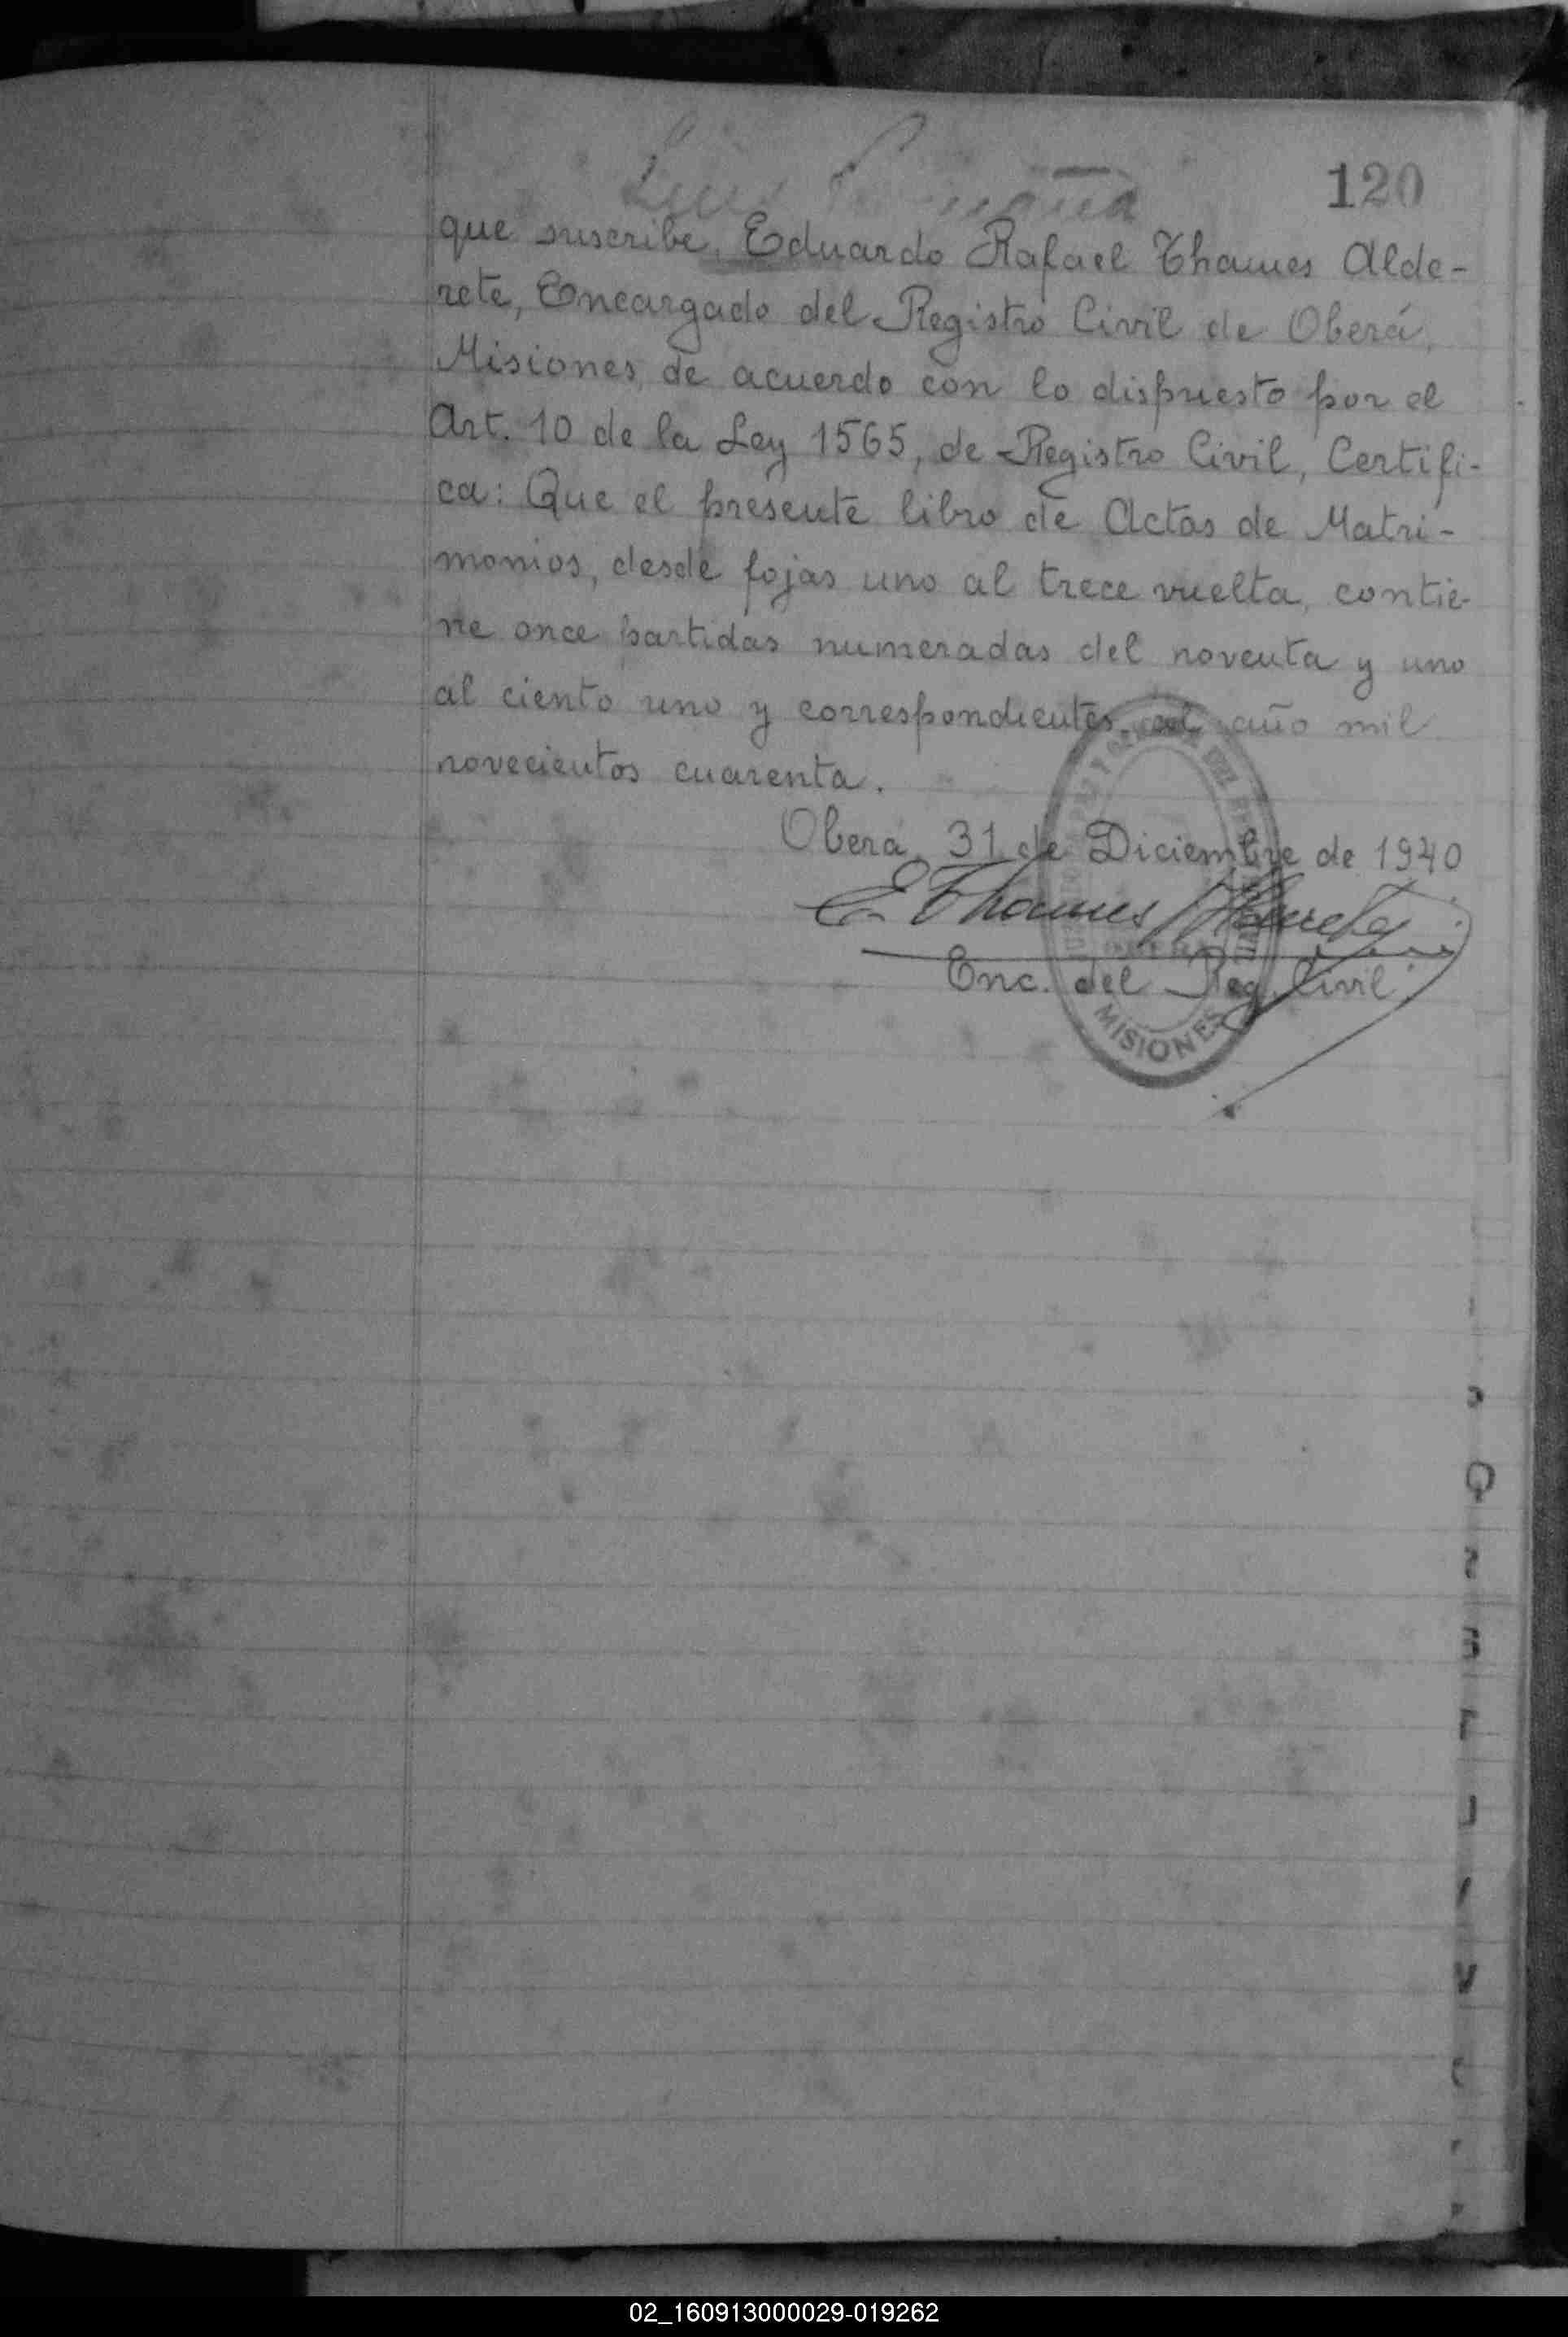 120
Luis
que suscribe, Eduardo Rafael Thames Alde-
rete, Encargado del Registro Civil de Oberá,
Misiones, de acuerdo con lo dispuesto por el
Art. 10 de la Ley 1565, de Registro Civil, Certifi-
ca: Que el presente libro de Actas de Matri-
monios, desde fojas uno al trece vuelta, contie-
ne once partidas numeradas del noventa y uno
al ciento uno y correspondientes al año mil
novecientos cuarenta.
Oberá, 31 de Diciembre de 1940
E. Thames Alderete
Enc. del Reg. Civil.
MISIONES
02_160913000029-019262